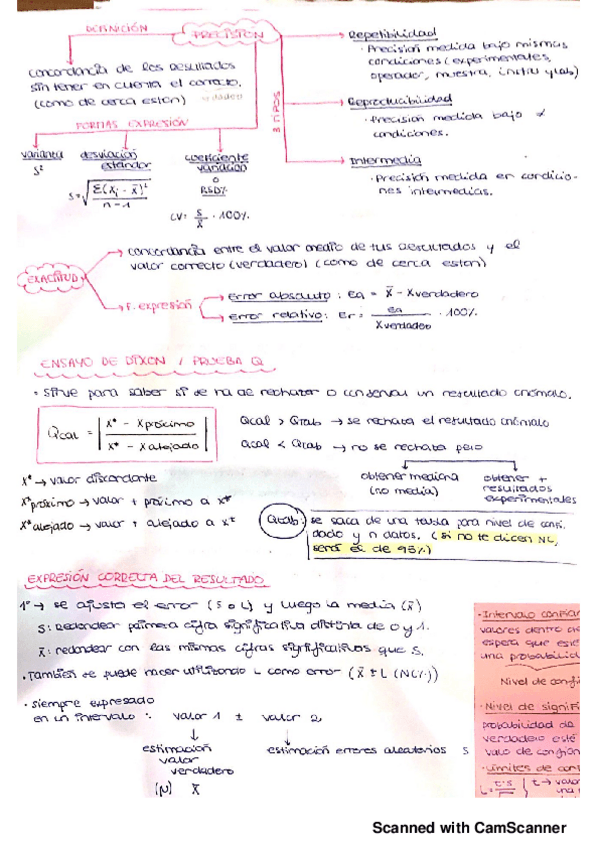 DEFINICIÓN
PRECISIÓN
concordancia de los resultados
sin tener en cuenta el correcto.
(como de cerca estan)
3 TIPOS
Repetibilidad
· Precisión medida bajo mismas
condiciones (experimentales,
operador, muestra, instru y lab)
Reproducibilidad
· Precisión medida bajo ≠
condiciones.
Intermedia
· Precisión medida en condicio-
nes intermedias.
FORMAS EXPRESIÓN
varianza
S²
desviación
estándar
S = √ Σ(xi - x̄)² / n - 1
coeficiente
variación
o
RSD%
CV = S / x̄ · 100%
EXACTITUD
concordancia entre el valor medio de tus resultados y el
valor correcto (verdadero) (como de cerca estan)
F. expresión
error absoluto : ea = x̄ - Xverdadero
error relativo : Er = ea / Xverdadero · 100%
ENSAYO DE DIXON / PRUEBA Q
· Sirve para saber si se ha de rechazar o conservar un resultado anómalo.
Qcal = | X* - Xpróximo / X* - Xalejado |
Qcal > Qtab → se rechaza el resultado anómalo
Qcal < Qtab → no se rechaza pero
obtener mediana
(no media)
obtener +
resultados
experimentales
X* → valor discordante
X*próximo → valor + próximo a X*
X*alejado → valor + alejado a X*
Qtab : se saca de una tabla para nivel de confi.
dado y n datos. ( si no te dicen NC,
será el de 95%)
EXPRESIÓN CORRECTA DEL RESULTADO
1º → se ajusta el error (S o L) y luego la media (x̄)
S: Redondear primera cifra significativa distinta de 0 y 1.
x̄: redondear con las mismas cifras significativas que S.
· También se puede hacer utilizando L como error ( x̄ ± L (NC%))
· siempre expresado
en un intervalo : valor 1 ± valor 2
estimación
valor
verdadero
(N) x̄
estimación errores aleatorios S
· Intervalo confian
valores dentro de
espera que esté
una probabilid
Nivel de confi
· Nivel de signifi
probabilidad de
verdadero esté
valo de confian
· Límites de con
L = t·s t → valor